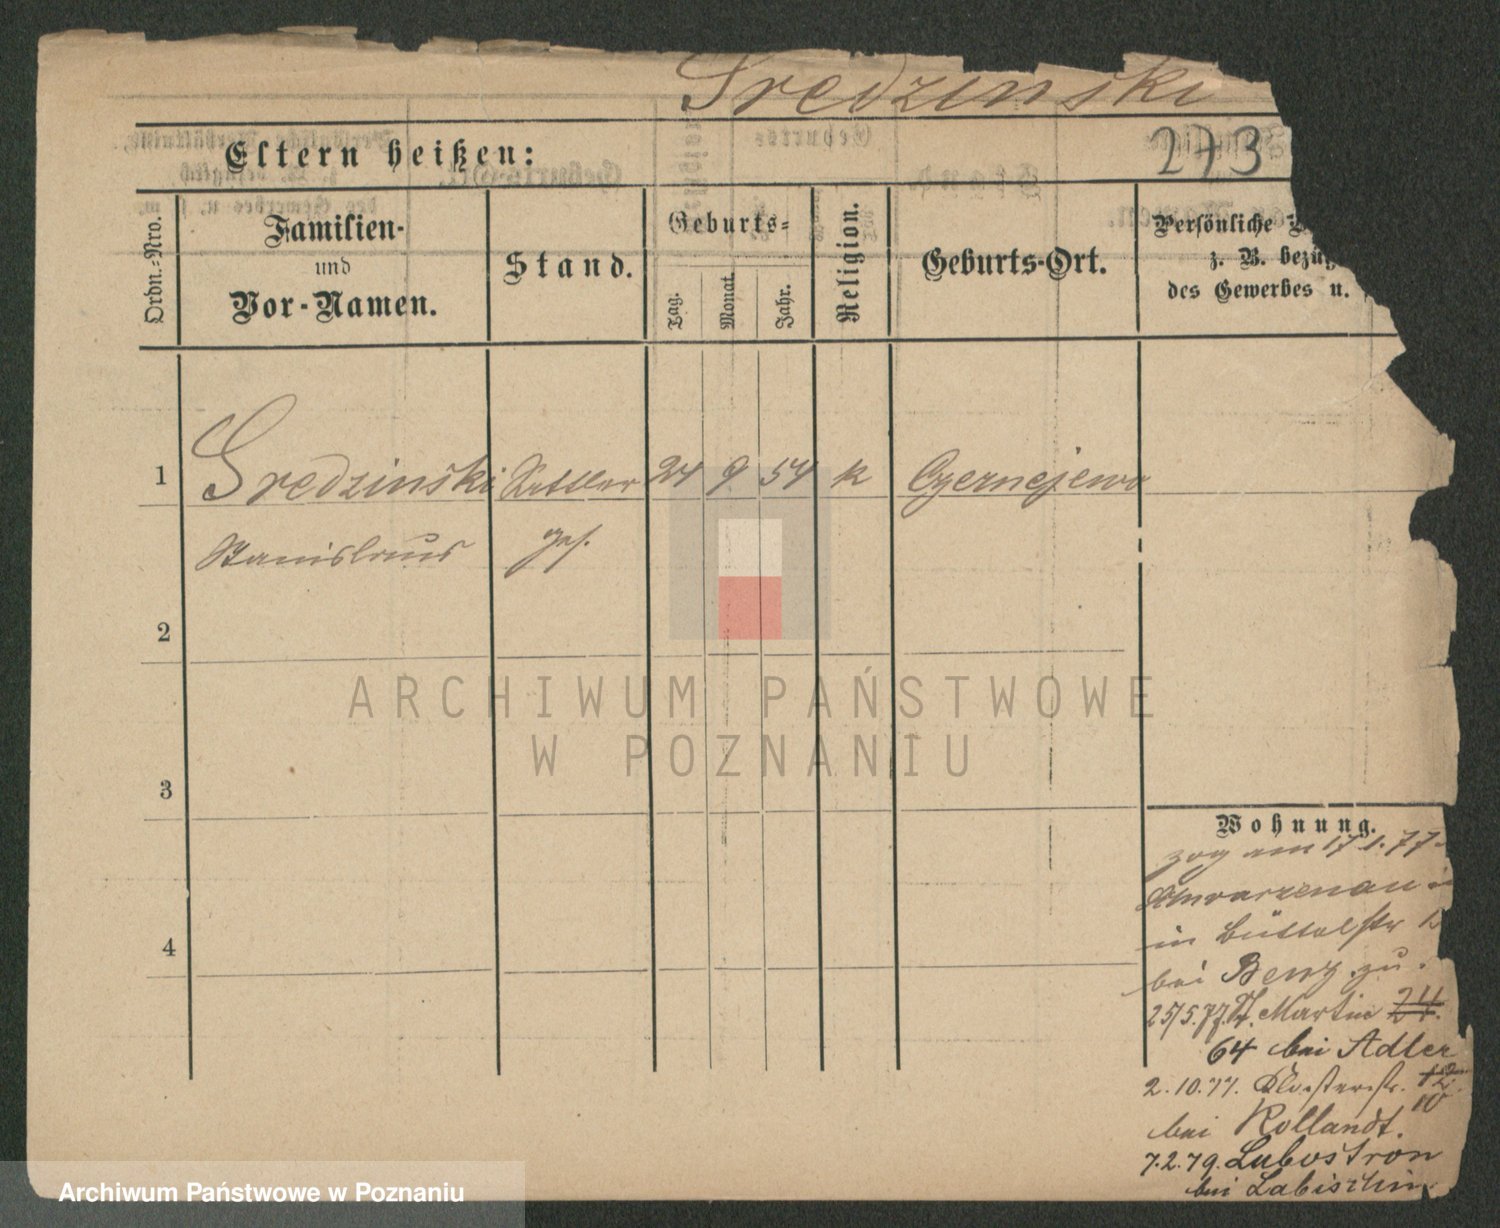 Sredzinski
273
Eltern heißen:
Ordn.-Nro.
Familien-
und
Vor-Namen.
Stand.
Geburts-
Tag.
Monat.
Jahr.
Religion.
Geburts-Ort.
Persönliche
z. B. bezüg
des Gewerbes u.
1 Sredzinski Sattler 24 9 54 k Czernejewo
Stanislaus ges.
2
3
4
ARCHIWUM PAŃSTWOWE
W POZNANIU
Wohnung.
zog am 17 1. 77
Schwarzenau
in Büttelstr
bei Berg zu.
25/5.77. St. Martin 24.
64 bei Adler
2.10.77. Klosterstr. 12
10
bei Rollandt.
7.2.79. Lubostron
bei Labischin
Archiwum Państwowe w Poznaniu